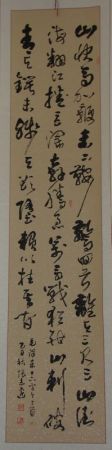 山快馬加鞭未下鞍驚回首離天三尺三山倒
海翻江捲巨瀾奔騰急萬馬戰猶酣山刺破
青天鍔未殘天欲墮賴以拄其間
毛澤東十六字令三首